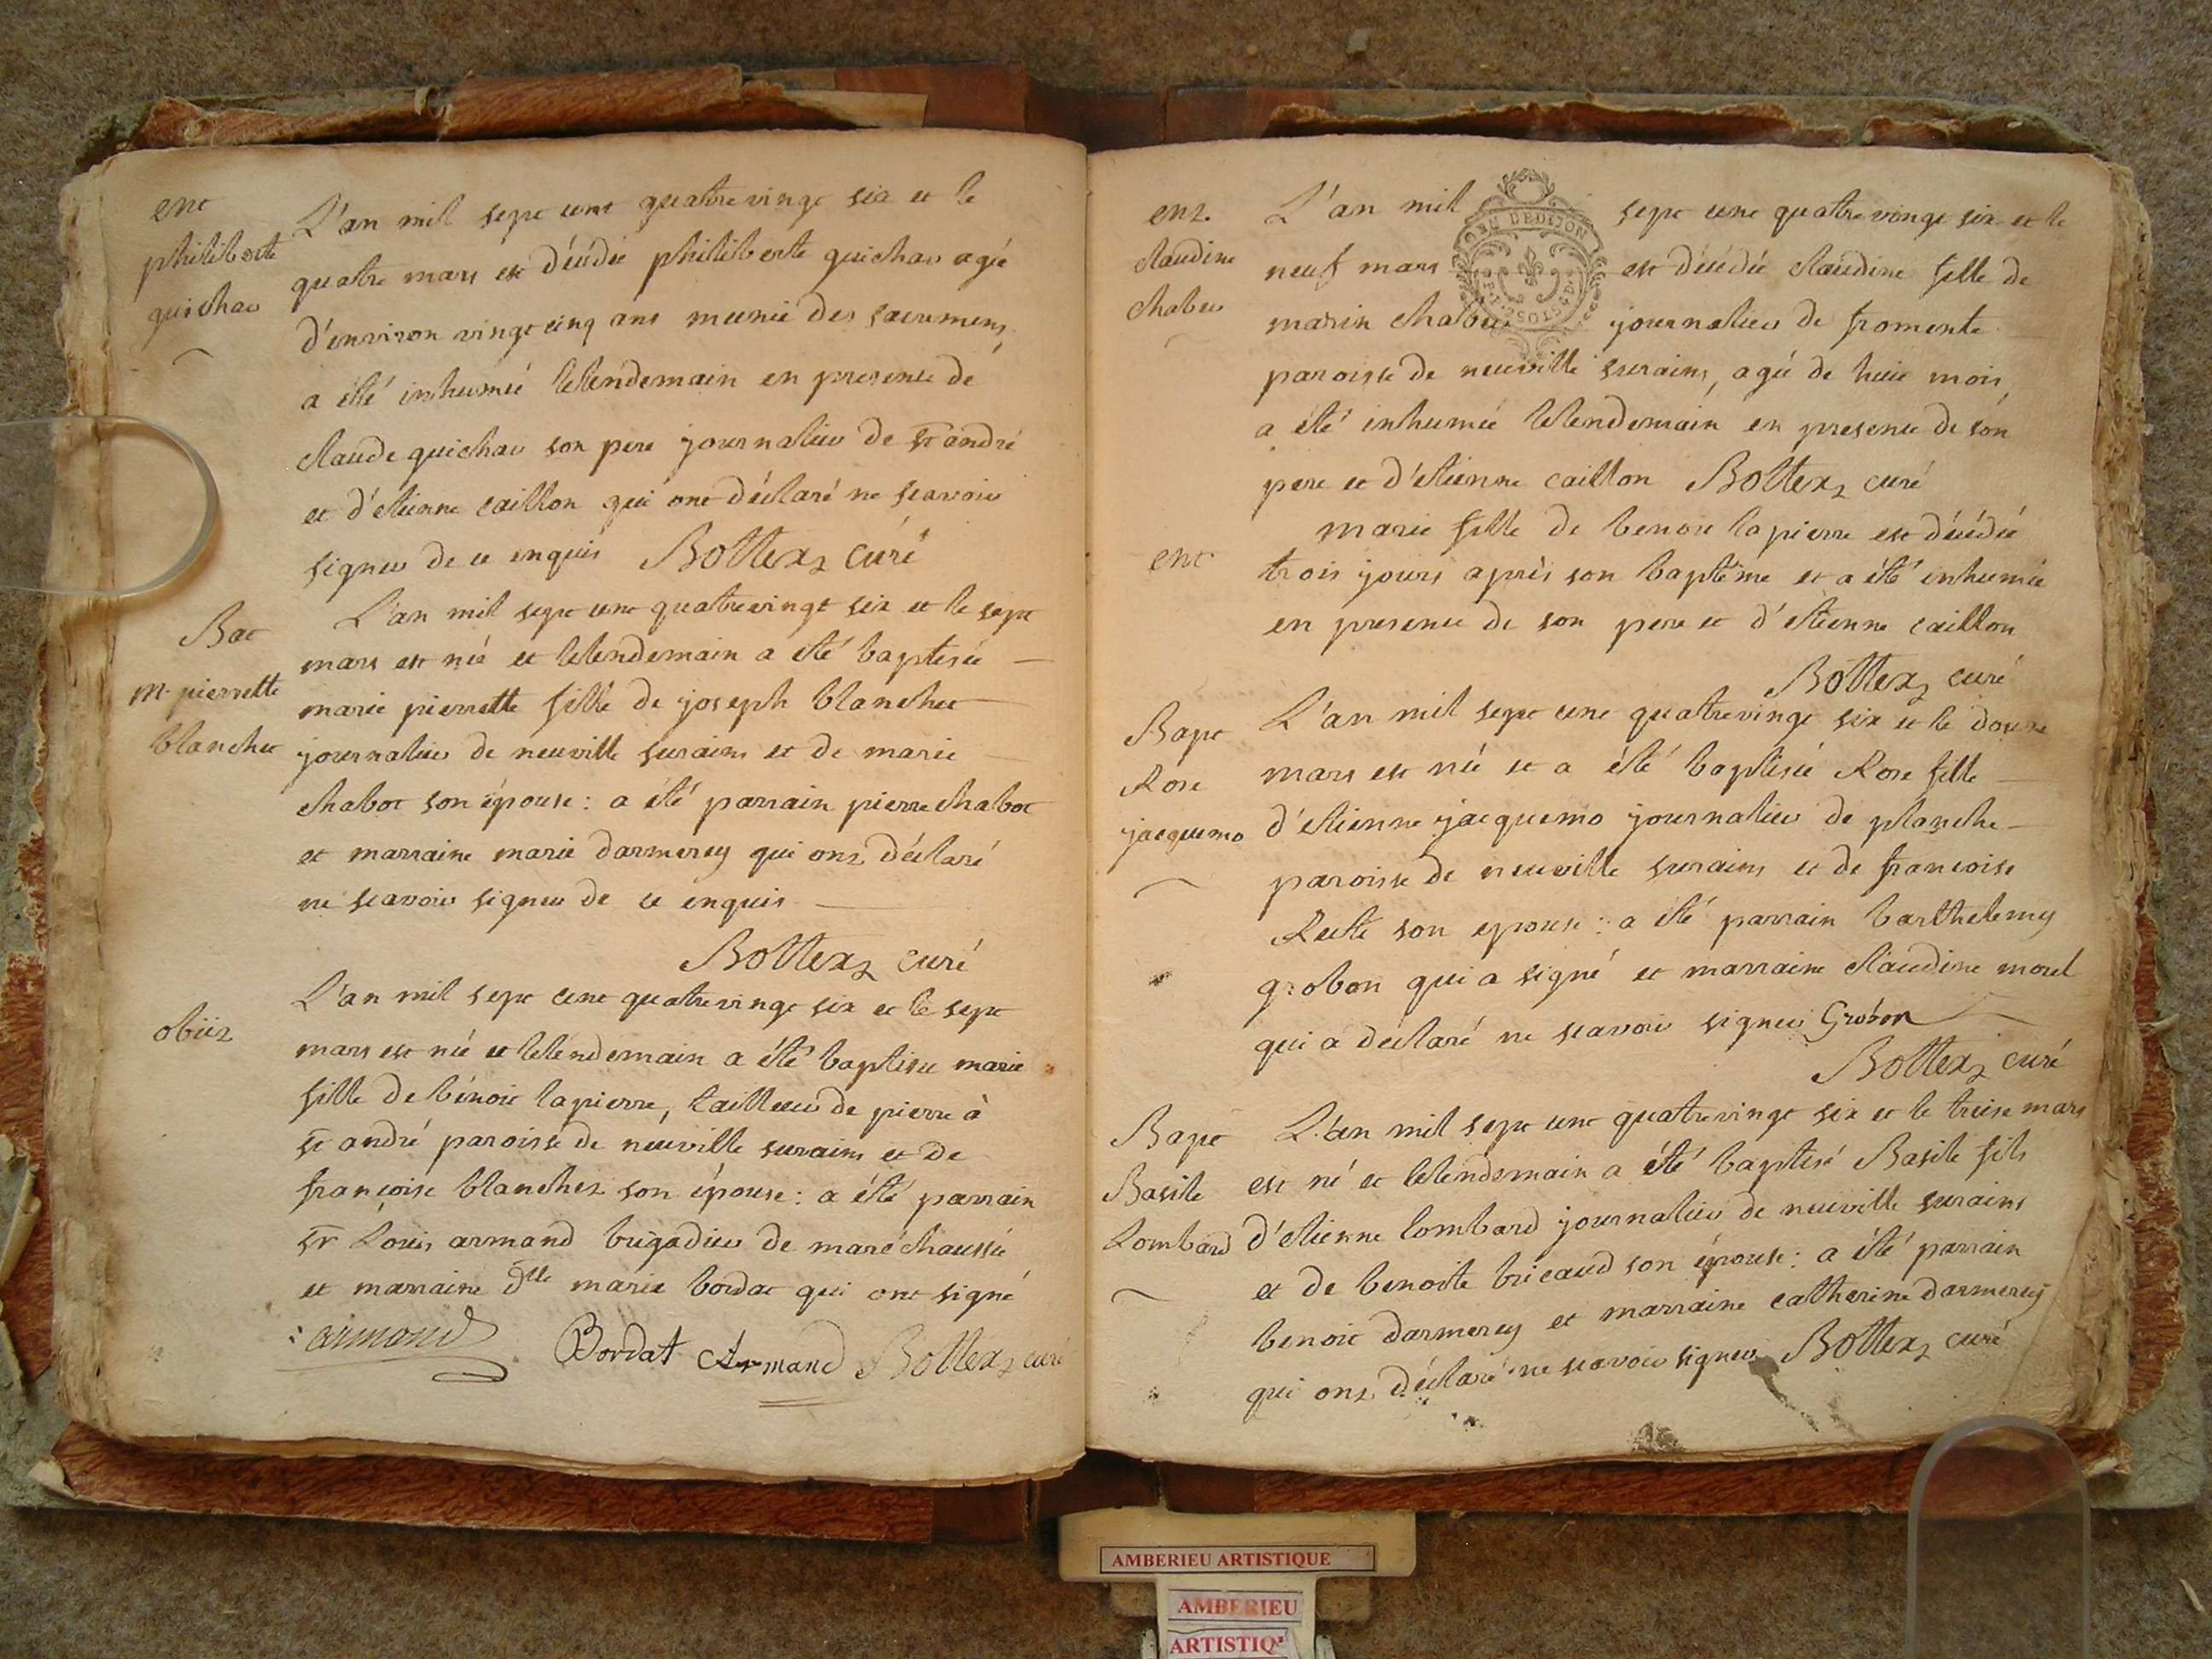 ent
philiberte
guichar
L'an mil sept cent quatre vingt six et le
quatre mars est décédée philiberte guichar agée
d'environ vingt cinq ans munie des sacremens
a été inhumée lelendemain en presence de
claude guichar son pere journalier de st andré
et d'etienne caillon qui ont déclaré ne scavoir
signer de ce enquis Bottex curé
Bat
m. pierrette
blanchet
L'an mil sept cent quatrevingt six et le sept
mars est née et lelendemain a été baptisée
marie pierrette fille de joseph blanchet
journalier de neuville surains et de marie
chabot son épouse : a été parrain pierre chabot
et marraine marie darmerey qui ont déclaré
ne scavoir signer de ce enquis
Bottex curé
obiit
L'an mil sept cent quatrevingt six et le sept
mars est née et lelendemain a été baptisée marie
fille de bénoit lapierre, tailleur de pierre à
st andré paroisse de neuville surains et de
françoise blanchet son épouse : a été parrain
sr Louis armand brigadier de maréchaussée
et marraine dlle marie bordat qui ont signé
armand Bordat Armand Bottex curé
ent.
claudine
chabeu
L'an mil sept cent quatre vingt six et le
neuf mars est décédée claudine fille de
marin chabeu journalier de fromente
paroisse de neuville surains, agée de huit mois,
a été inhumée lelendemain en presence de son
pere et d'etienne caillon Bottex curé
ent
marie fille de benoit lapierre est décédée
trois jours après son baptême et a été inhumée
en presence de son pere et d'etienne caillon
Bottex curé
Bapt
Rose
jacquemo
L'an mil sept cent quatrevingt six et le douze
mars est née et a été baptisée Rose fille
d'etienne jacquemo journalier de planche
paroisse de neuville surains et de françoise
son epouse : a été parrain barthelemy
grobon qui a signé et marraine claudine morel
qui a déclaré ne scavoir signer Grobon
Bottex curé
Bapt
Basile
Lombard
L'an mil sept cent quatrevingt six et le treize mars
est né et lelendemain a été baptisé Basile fils
d'etienne lombard journalier de neuville surains
et de benoite bricaud son épouse : a été parrain
benoit darmerey et marraine catherine darmerey
qui ont déclaré ne scavoir signer Bottex curé
GEN DE DIJON
AMBERIEU ARTISTIQUE
AMBERIEU
ARTISTIQ